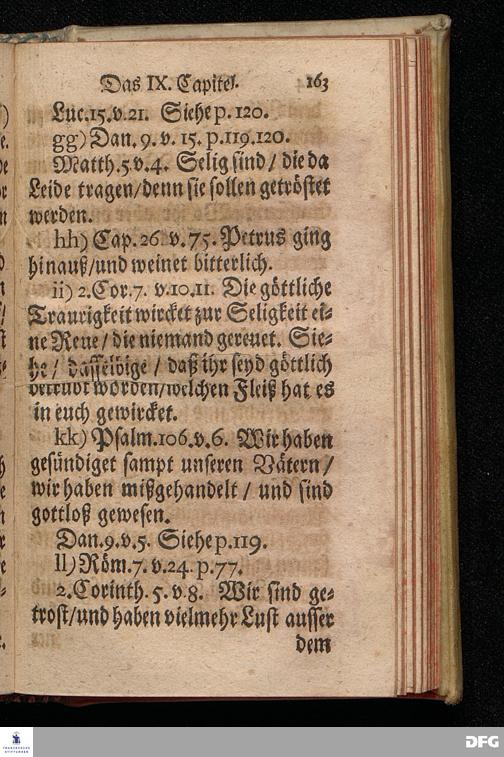 Das IX. Capitel. 163
Luc. 15. v. 21. Siehe p. 120.
gg) Dan. 9. v. 15. p. 119. 120.
Matth. 5. v. 4. Selig sind / die da
Leide tragen / denn sie sollen getröstet
werden.
hh) Cap. 26. v. 75. Petrus ging
hinauß / und weinet bitterlich.
ii) 2. Cor. 7. v. 10. 11. Die göttliche
Traurigkeit wircket zur Seligkeit ei-
ne Reue / die niemand gereuet. Sie-
he / dasselbige / daß ihr seyd göttlich
betrübt worden / welchen Fleiß hat es
in euch gewircket.
kk) Psalm. 106. v. 6. Wir haben
gesündiget sampt unseren Vätern /
wir haben mißgehandelt / und sind
gottloß gewesen.
Dan. 9. v. 5. Siehe p. 119.
ll) Röm. 7. v. 24. p. 77.
2. Corinth. 5. v. 8. Wir sind ge-
trost / und haben vielmehr Lust ausser
dem
FRANCKESCHE STIFTUNGEN
DFG